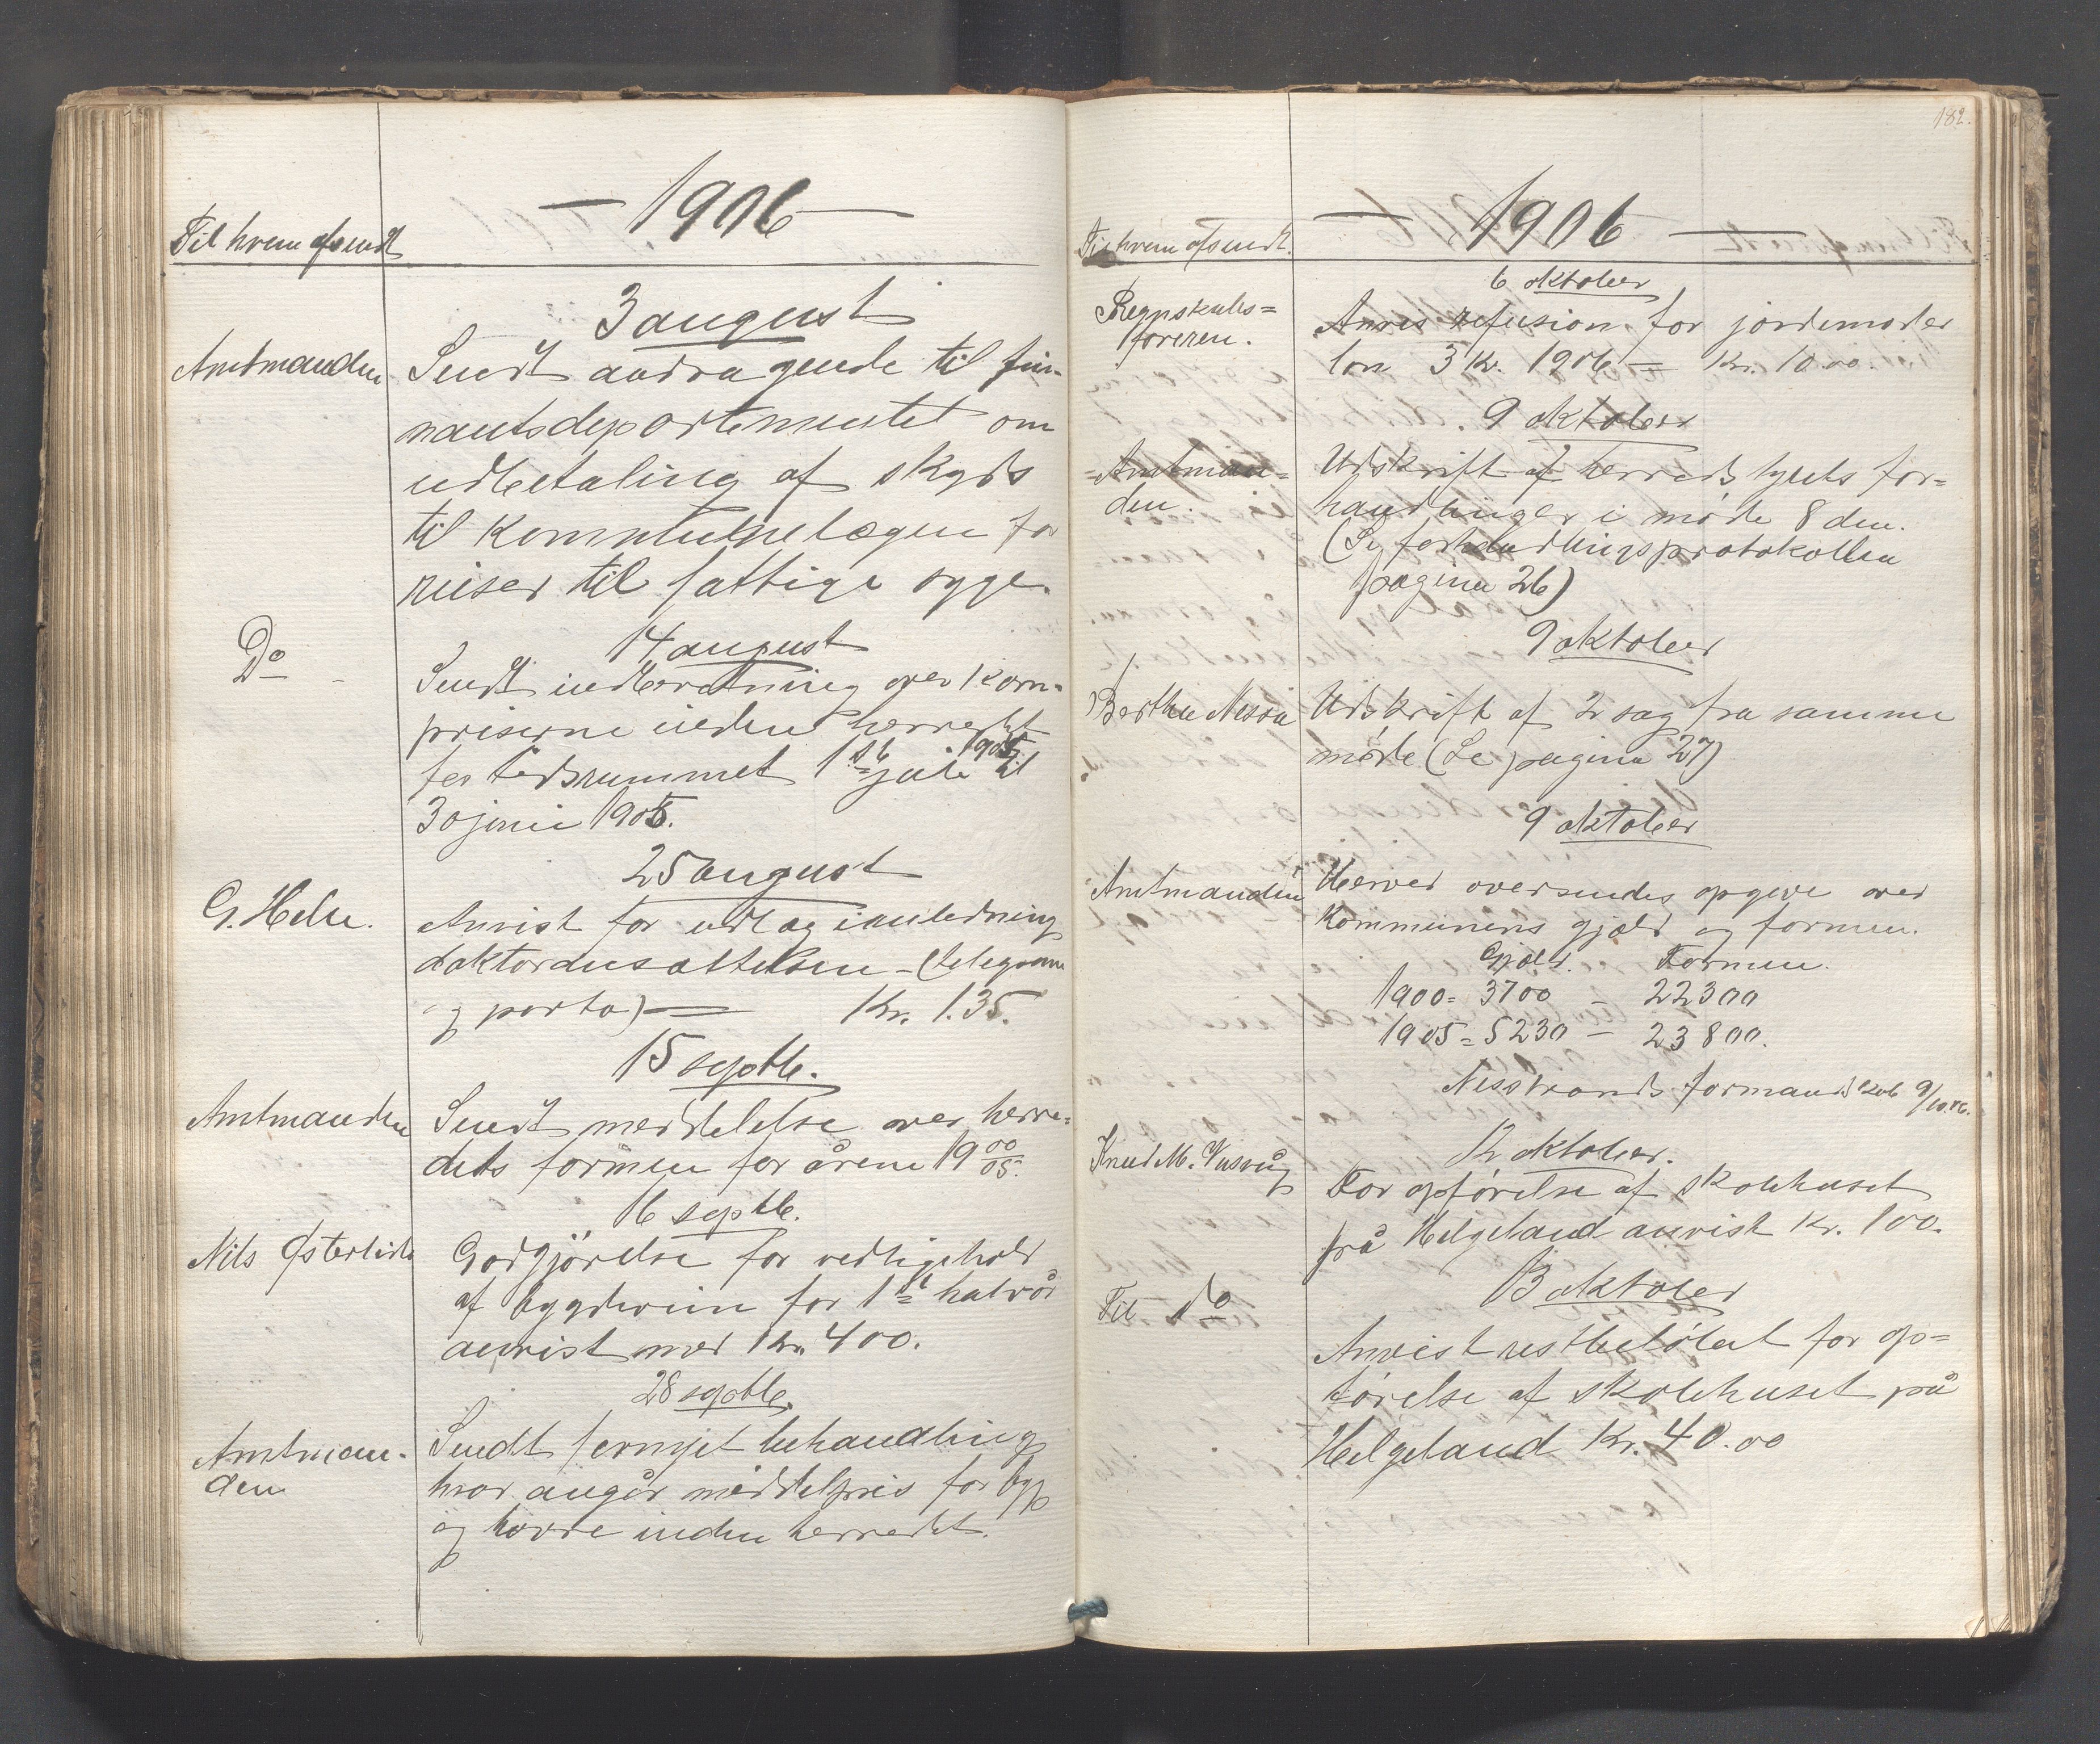 — 1906 —
Til hvem afsendt
3 august
Amtmanden
Sendt andragende til fin-
nantsdepartementet om
udbetaling af skyds
til kommunelægen for
reiser til fattige syge.
14 august
Do -
Sendt indberetning over korn-
priserne inden herredet
for tidsrummet 1ste juli 1905 til
30 juni 1906.
25 august
G. Helle.
Anvist for udlag i anledning
doktoransættelsen – (telegram
og porto) — Kr. 1.35.
15 septb.
Amtmanden
Sendt meddelelse over herre-
dets formue for årene 1900/05.
16 septb.
Nils Østerlide
Godtgjörelse for vedligehold
af bygdevein for 1ste halvår
anvist med Kr. 400.
28 septb.
Amtman-
den
Sendt fornyet behandling
hvad angår middelpris for byg
og havre inden herredet.
182.
— 1906 —
Til hvem afsendt.
6 oktober
Regnskabs=
föreren.
Anvis refusion for jordemoder
løn 3 Kv. 1906 = Kr. 10.00.
9 oktober
=Amtman=
den.
Udskrift af herredsstyrets for=
handlinger i møde 8 den.
(Se forhandlingsprotokollen
pagina 26)
9 oktober
Berthe Nessa
Udskrift af 2 sag fra samme
møde (Se pagina 27)
9 oktober
Amtmanden
Herved oversendes opgave over
Kommunens gjæld og formue.
Gjæld. Formue.
1900= 3700 – 22300
1905= 5230 – 23800.
Nesstrands formandskab 9/10.06.
12 oktober.
Knud M.
For opförelse af skolehuset
på Helgeland anvist Kr. 100.
13 oktober
Til do
Anvist restbelöbet for op=
förelse af skolehuset på
Helgeland Kr. 40.00